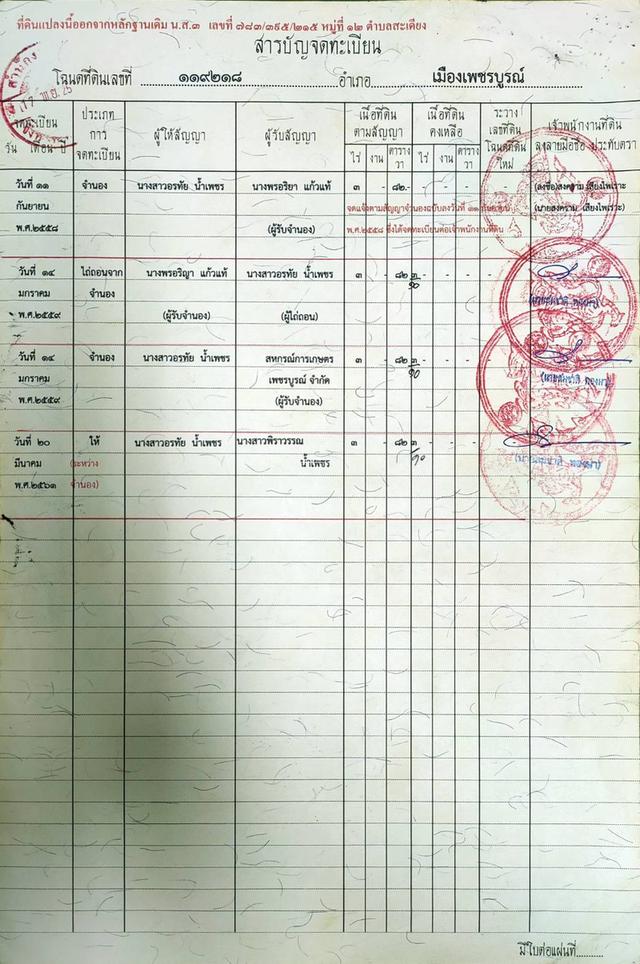 ที่ดินแปลงนี้ออกจากหลักฐานเดิม น.ส.๓ เลขที่ ๗๘๓/๓๙๕/๒๑๕ หมู่ที่ ๑๒ ตำบลสะเดียง
สารบัญจดทะเบียน
โฉนดที่ดินเลขที่ ๑๑๙๒๑๘ อำเภอ เมืองเพชรบูรณ์
จดทะเบียน วัน เดือน ปี
ประเภท การ จดทะเบียน
ผู้ให้สัญญา
ผู้รับสัญญา
เนื้อที่ดิน ตามสัญญา
ไร่ งาน ตาราง วา
เนื้อที่ดิน คงเหลือ
ไร่ งาน ตาราง วา
ระวาง เลขที่ดิน โฉนดที่ดิน ใหม่
เจ้าพนักงานที่ดิน ลงลายมือชื่อ ประทับตรา
วันที่ ๑๑ จำนอง นางสาวอรทัย น้ำเพชร นางพรอริยา แก้วแท้ ๓ - ๘๒ - - - (ลงชื่อ)สงคราม เสียงไพเราะ
กันยายน (นายสงคราม เสียงไพเราะ)
พ.ศ.๒๕๕๘ (ผู้รับจำนอง) พ.ศ.๒๕๕๘ ซึ่งได้จดทะเบียนต่อเจ้าพนักงานที่ดิน
วันที่ ๑๔ ไถ่ถอนจาก นางพรอริญา แก้วแท้ นางสาวอรทัย น้ำเพชร ๓ - ๘๒ ๓/๑๐ - - -
มกราคม จำนอง
พ.ศ.๒๕๕๙ (ผู้รับจำนอง) (ผู้ไถ่ถอน)
วันที่ ๑๔ จำนอง นางสาวอรทัย น้ำเพชร สหกรณ์การเกษตร ๓ - ๘๒ ๓/๑๐ - - -
มกราคม เพชรบูรณ์ จำกัด
พ.ศ.๒๕๕๙ (ผู้รับจำนอง)
วันที่ ๒๐ ให้ นางสาวอรทัย น้ำเพชร นางสาวพิราวรรณ ๓ - ๘๒ ๓/๑๐ - - -
มีนาคม (ระหว่าง น้ำเพชร
พ.ศ.๒๕๖๑ จำนอง)
มีใบต่อแผ่นที่..........